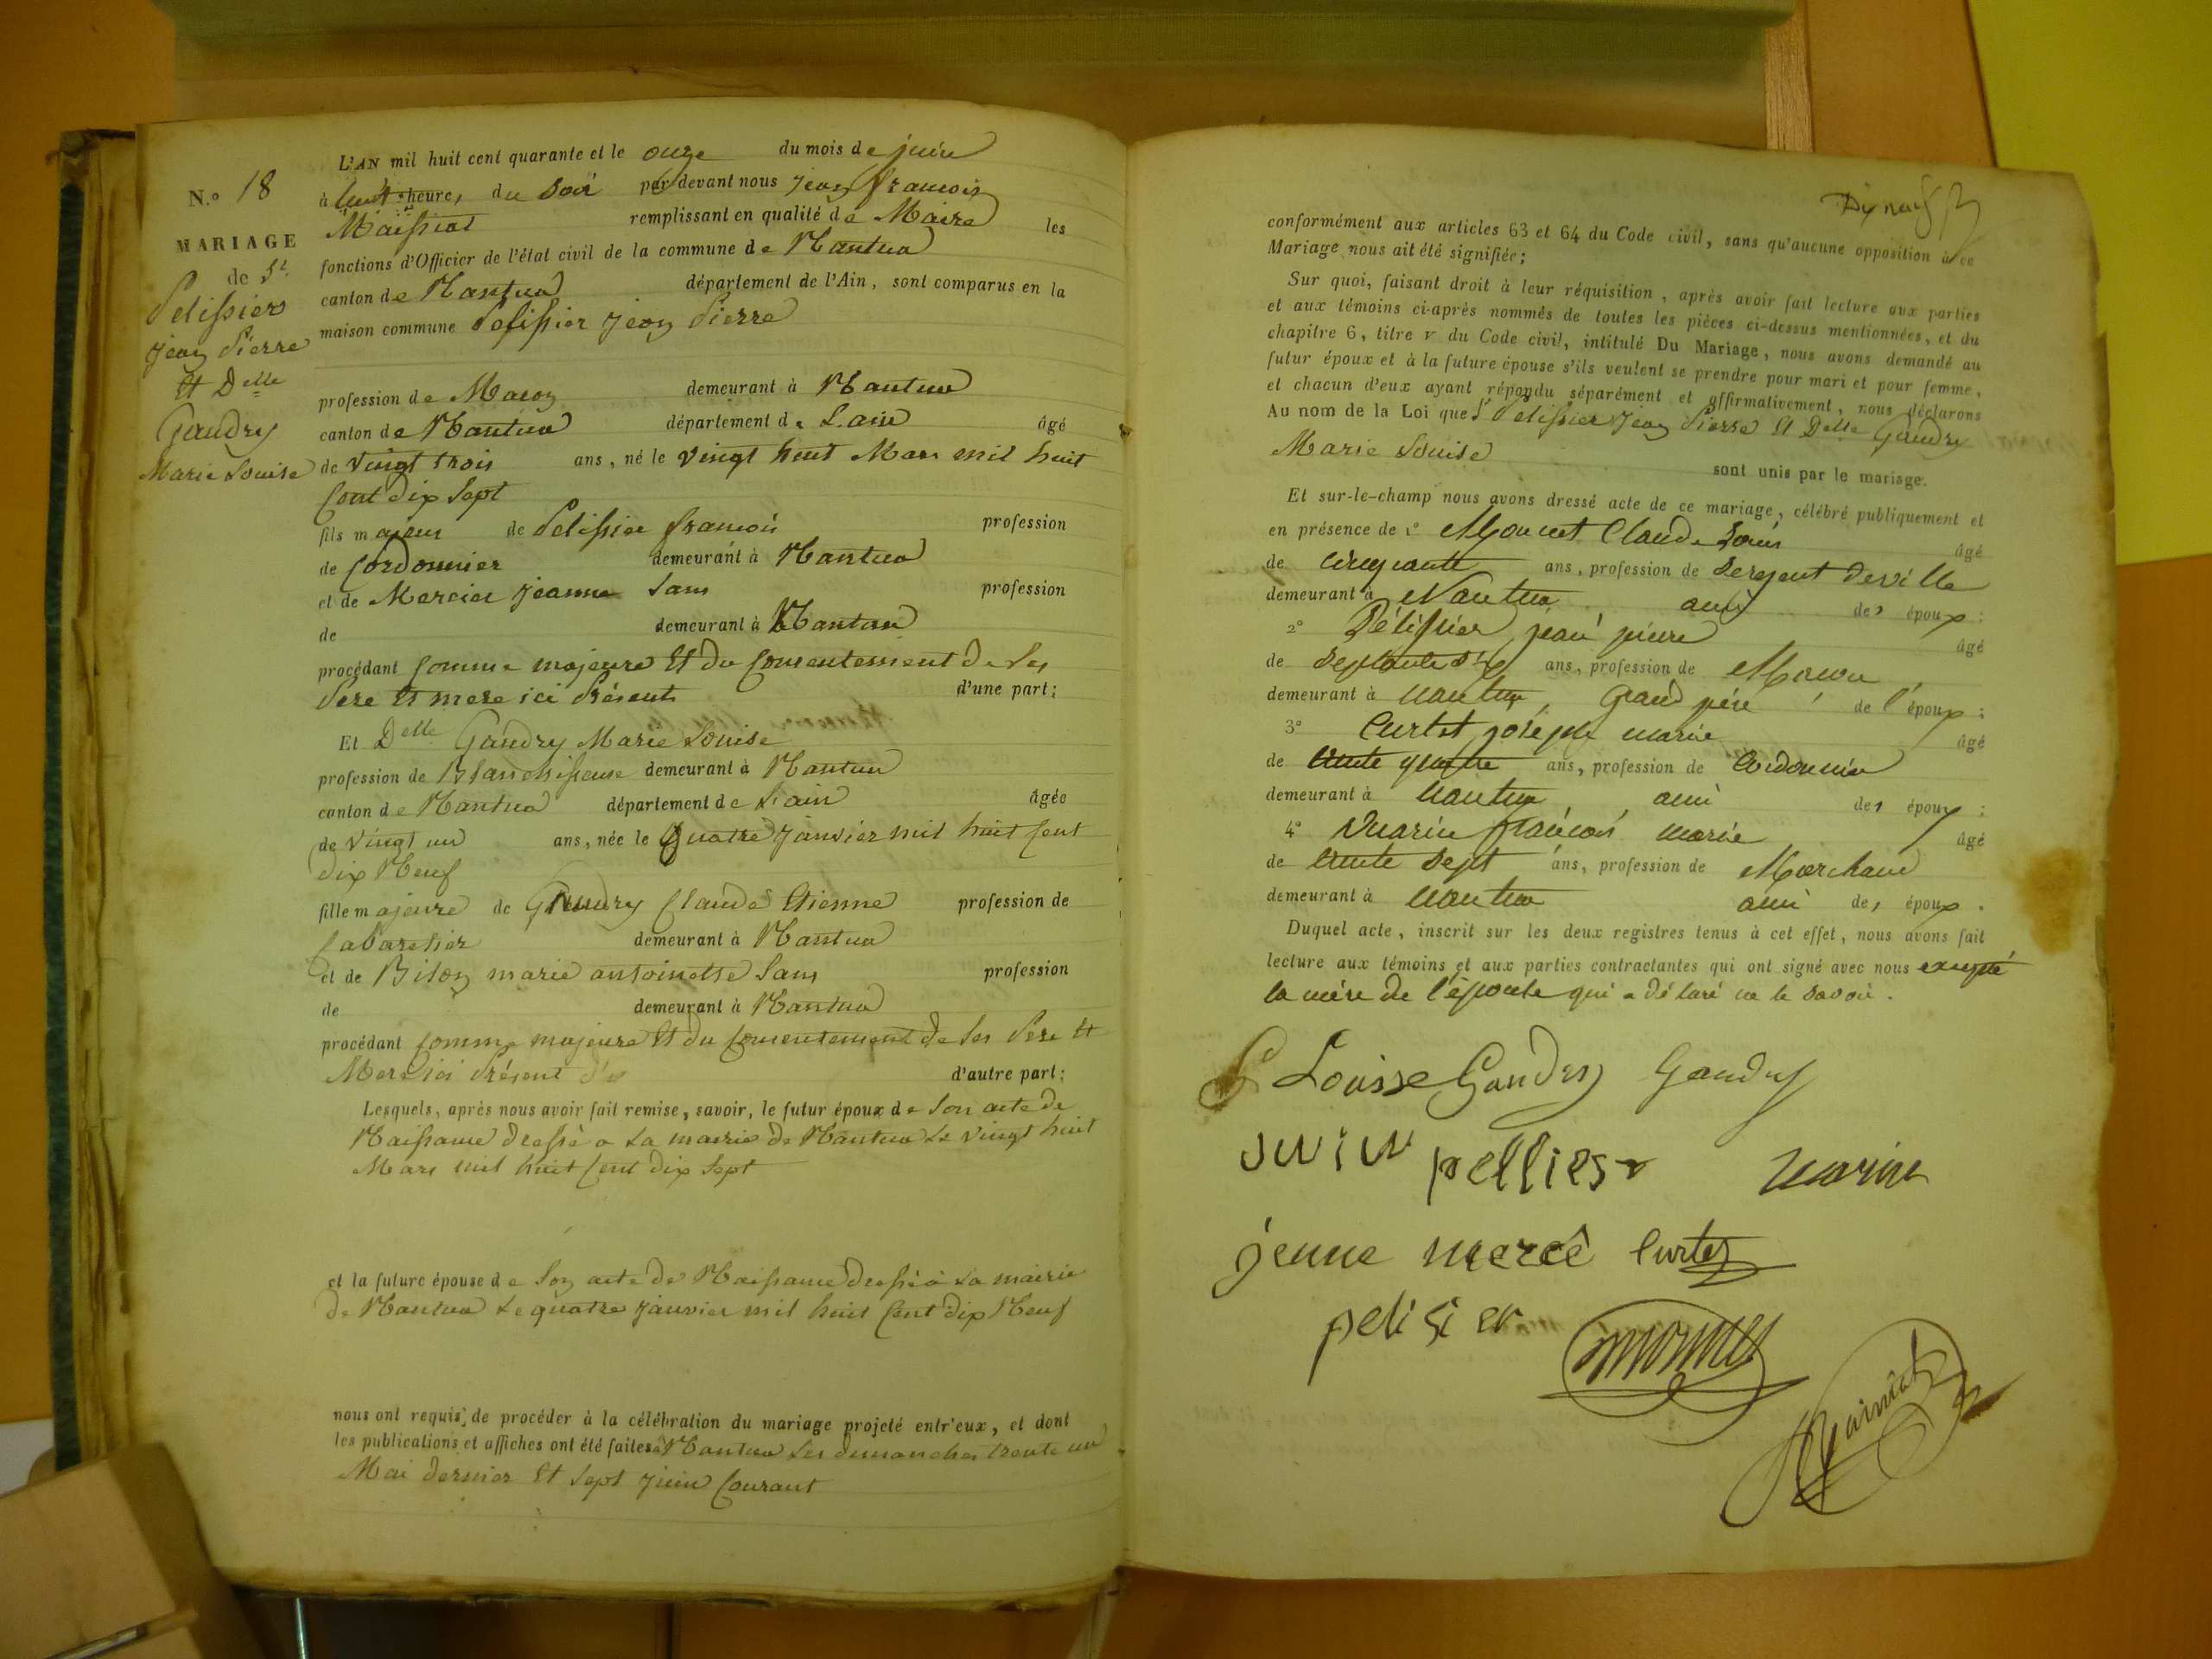 N.° 18
MARIAGE
de Sr.
Pelissier
Jean Pierre
Et Delle
Gaudry
Marie Louise
L'AN mil huit cent quarante et le onze du mois de juin
à huit heures du Soir par devant nous Jean françois
Maissiat remplissant en qualité de Maire les
fonctions d'Officier de l'état civil de la commune de Nantua
canton de Nantua département de l'Ain, sont comparus en la
maison commune Pelissier Jean Pierre
profession de Macon demeurant à Nantua
canton de Nantua département de L'ain âgé
de vingt trois ans, né le vingt huit Mars mil huit
Cent dix Sept
fils majeur de Pelissier françois profession
de Cordonnier demeurant à Nantua
et de Mercier Jeanne Sans profession
de demeurant à Nantua
procédant Comme majeure Et du Consentement de Ses
Pere Et mere ici Présents d'une part;
Et Delle Gaudry Marie Louise
profession de Blanchisseuse demeurant à Nantua
canton de Nantua département de L'ain âgée
de vingt un ans, née le Quatre Janvier mil huit Cent
dix Neuf
fille majeure de Gaudry Claude Etienne profession de
Cabaretier demeurant à Nantua
et de Bilon marie antoinette Sans profession
de demeurant à Nantua
procédant Comme majeure Et du Consentement de Ses Pere Et
Mere ici Présent d'autre part;
Lesquels, après nous avoir fait remise, savoir, le futur époux de Son acte de
Naissance dressé a La mairie de Nantua Le vingt huit
Mars mil huit Cent dix Sept
et la future épouse de Son acte de Naissance dressé à La mairie
de Nantua Le quatre Janvier mil huit Cent dix Neuf
nous ont requis de procéder à la célébration du mariage projeté entr'eux, et dont
les publications et affiches ont été faites à Nantua Les dimanches trente un
Mai dernier Et Sept Juin Courant
Dix neuf
conformément aux articles 63 et 64 du Code civil, sans qu'aucune opposition à ce
Mariage nous ait été signifiée;
Sur quoi, faisant droit à leur réquisition, après avoir fait lecture aux parties
et aux témoins ci-après nommés de toutes les pièces ci-dessus mentionnées, et du
chapitre 6, titre v du Code civil, intitulé Du Mariage, nous avons demandé au
futur époux et à la future épouse s'ils veulent se prendre pour mari et pour femme,
et chacun d'eux ayant répondu séparément et affirmativement, nous déclarons
Au nom de la Loi que Sr Pelissier Jean Pierre Et Delle Gaudry
Marie Louise sont unis par le mariage.
Et sur-le-champ nous avons dressé acte de ce mariage, célébré publiquement et
en présence de 1° Claude Louis âgé
de cinquante ans, profession de Sergent de ville
demeurant à Nantua ami des époux;
2° Pélissier jean pierre âgé
de Septante Six ans, profession de Macon
demeurant à nantua, Grand père de l'époux;
3° Curtet joseph marie âgé
de trente quatre ans, profession de Cordonnier
demeurant à nantua, ami des époux;
4° Marin françois marie âgé
de trente Sept ans, profession de Marchand
demeurant à nantua ami des époux.
Duquel acte, inscrit sur les deux registres tenus à cet effet, nous avons fait
lecture aux témoins et aux parties contractantes qui ont signé avec nous excepté
la mère de l'épouse qui a déclaré ne le savoir.
Louisse Gaudry Gaudry
pellier marin
jenne mercê Curtet
pelisier
Maissiat